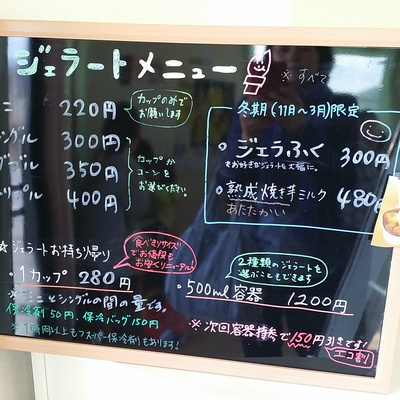 ジェラートメニュー
※すべて
ニ 220円
カップのみで
お願いします
ングル 300円
ブル 350円
ープル 400円
カップか
コーンを
お選びください。
冬期(11月～3月)限定
・ジェラふく 300円
・熟成焼き芋ミルク 480
あたたかい
☆ジェラートお持ち帰り
食べきりサイズ
でお値段も
お安くリニューアル
・1カップ 280円
※ミニとシングルの間の量です。
保冷剤50円、保冷バッグ150円
※1時間以上もつスーパー保冷剤もあります!
2種類のジェラートを
選ぶこともできます
・500ml容器 1200円
※次回容器持参で150円引きです!
エコ割